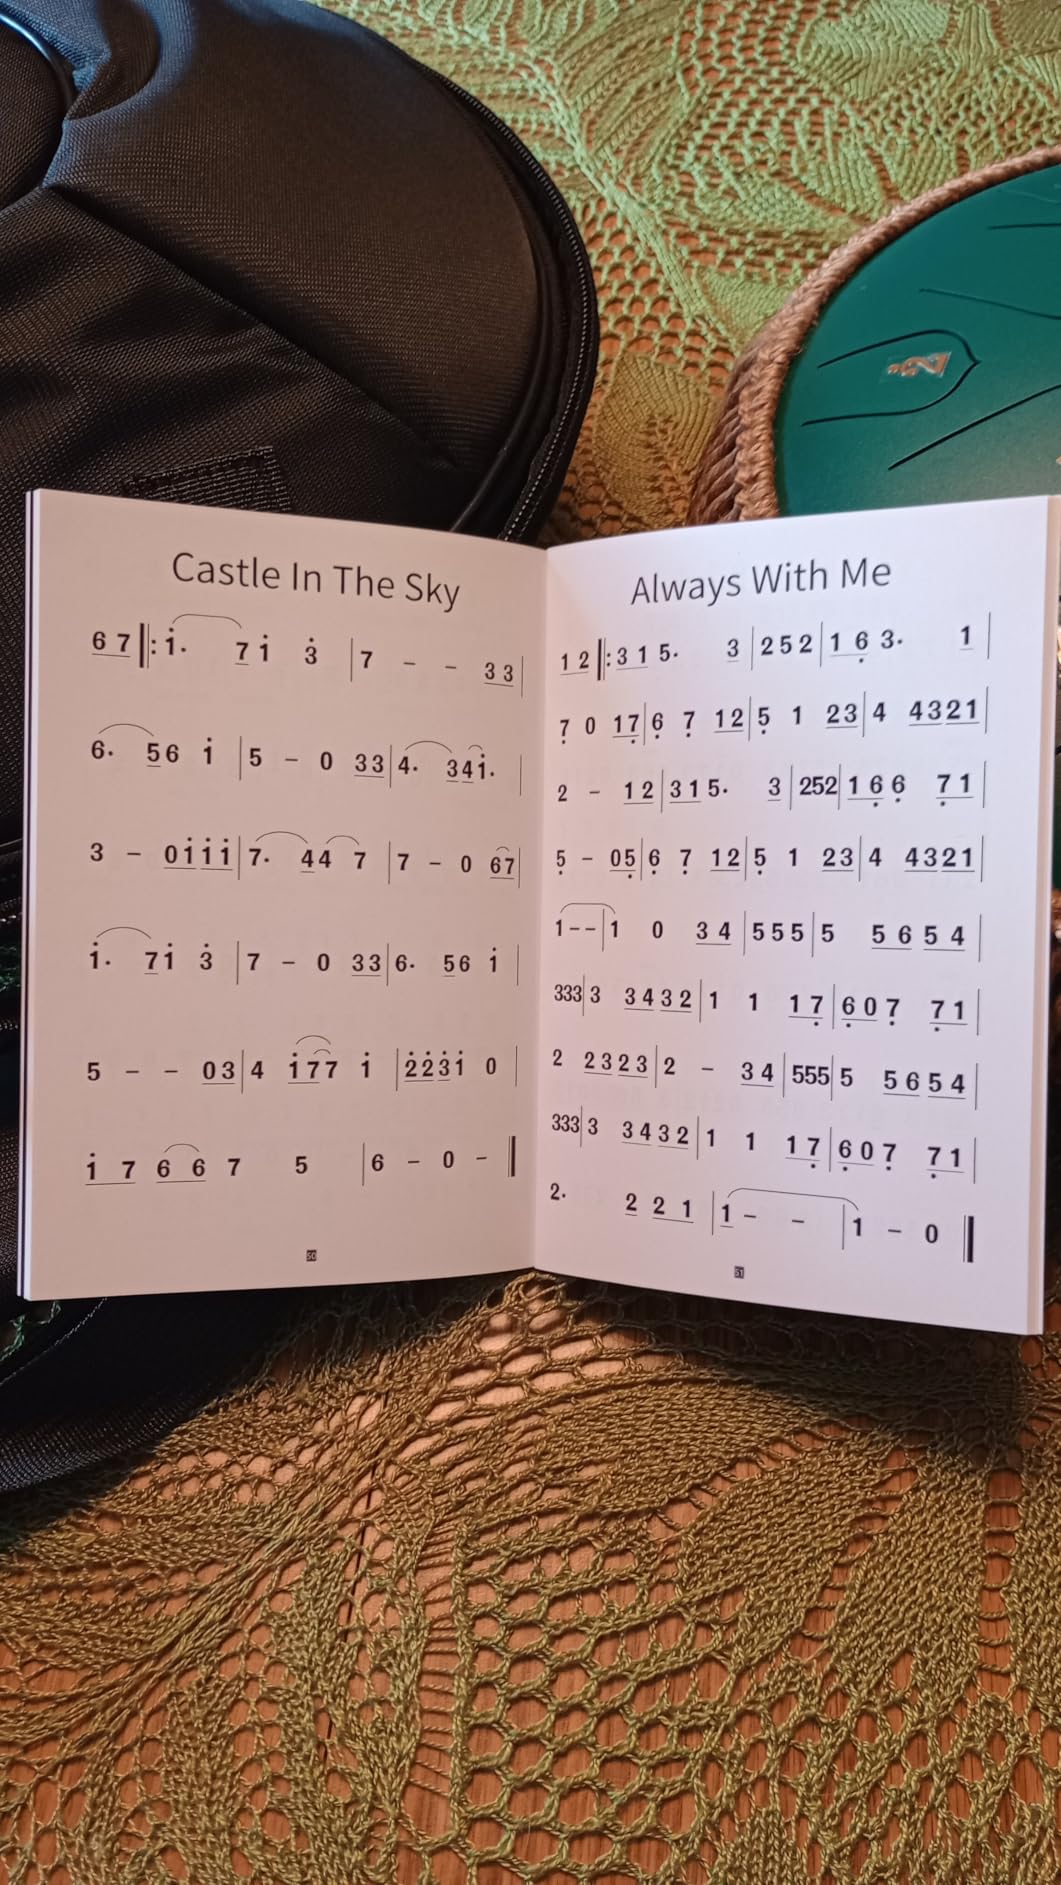 Castle In The Sky
6 7 ‖: i̇· 7 i̇ 3̇ | 7 – – 3 3 |
6· 5 6 i̇ | 5 – 0 3 3 | 4· 3 4 i̇· |
3 – 0 i̇ i̇ i̇ | 7· 4 4 7 | 7 – 0 6 7 |
i̇· 7 i̇ 3̇ | 7 – 0 3 3 | 6· 5 6 i̇ |
5 – – 0 3 | 4 i̇ 7 7 i̇ | 2̇ 2̇ 3̇ i̇ 0 |
i̇ 7 6 6 7 5 | 6 – 0 – ‖
50
Always With Me
1 2 ‖: 3 1 5· 3 | 2 5 2 | 1 6̣ 3· 1 |
7̣ 0 1 7̣ | 6̣ 7̣ 1 2 | 5̣ 1 2 3 | 4 4 3 2 1 |
2 – 1 2 | 3 1 5· 3 | 2 5 2 | 1 6̣ 6̣ 7̣ 1 |
5̣ – 0 5̣ | 6̣ 7̣ 1 2 | 5̣ 1 2 3 | 4 4 3 2 1 |
1 – – | 1 0 3 4 | 5 5 5 | 5 5 6 5 4 |
3 3 3 | 3 3 4 3 2 | 1 1 1 7̣ | 6̣ 0 7̣ 7̣ 1 |
2 2 3 2 3 | 2 – 3 4 | 5 5 5 | 5 5 6 5 4 |
3 3 3 | 3 3 4 3 2 | 1 1 1 7̣ | 6̣ 0 7̣ 7̣ 1 |
2· 2 2 1 | 1 – – | 1 – 0 ‖
51